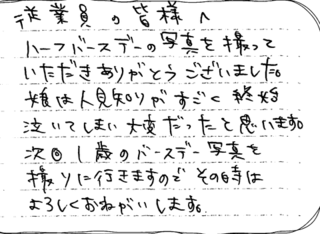 従業員の皆様へ
ハーフバースデーの写真を撮って
いただきありがとうございました。
娘は人見知りがすごく終始
泣いてしまい大変だったと思います。
次回1歳のバースデー写真を
撮りに行きますので その時は
よろしくおねがいします。